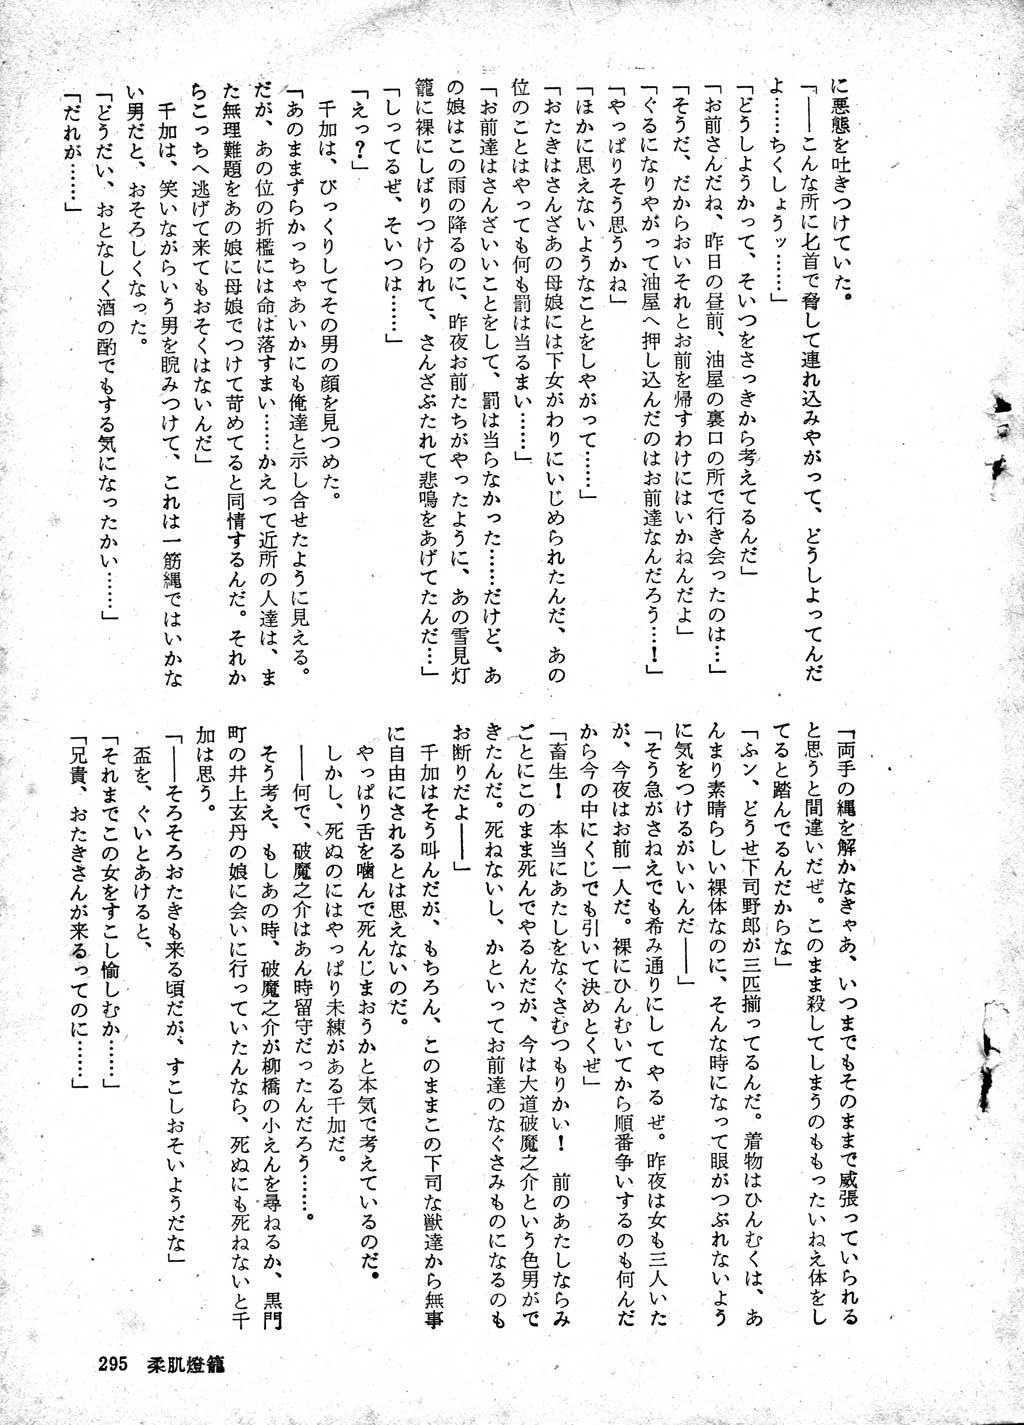 に悪態を吐きつけていた。
「――こんな所に匕首で脅して連れ込みやがって、どうしよってんだ
よ……ちくしょうッ……」
「どうしようかって、そいつをさっきから考えてるんだ」
「お前さんだね、昨日の昼前、油屋の裏口の所で行き会ったのは…」
「そうだ、だからおいそれとお前を帰すわけにはいかねんだよ」
「ぐるになりやがって油屋へ押し込んだのはお前達なんだろう…！」
「やっぱりそう思うかね」
「ほかに思えないようなことをしやがって……」
「おたきはさんざあの母娘には下女がわりにいじめられたんだ、あの
位のことはやっても何も罰は当るまい……」
「お前達はさんざいいことをして、罰は当らなかった……だけど、あ
の娘はこの雨の降るのに、昨夜お前たちがやったように、あの雪見灯
籠に裸にしばりつけられて、さんざぶたれて悲鳴をあげてたんだ…」
「しってるぜ、そいつは……」
「えっ？」
千加は、びっくりしてその男の顔を見つめた。
「あのままずらかっちゃあいかにも俺達と示し合せたように見える。
だが、あの位の折檻には命は落すまい……かえって近所の人達は、ま
た無理難題をあの娘に母娘でつけて苛めてると同情するんだ。それか
らこっちへ逃げて来てもおそくはないんだ」
千加は、笑いながらいう男を睨みつけて、これは一筋縄ではいかな
い男だと、おそろしくなった。
「どうだい、おとなしく酒の酌でもする気になったかい……」
「だれが……」
「両手の縄を解かなきゃあ、いつまでもそのままで威張っていられる
と思うと間違いだぜ。このまま殺してしまうのももったいねえ体をし
てると踏んでるんだからな」
「ふン、どうせ下司野郎が三匹揃ってるんだ。着物はひんむくは、あ
んまり素晴らしい裸体なのに、そんな時になって眼がつぶれないよう
に気をつけるがいいんだ――」
「そう急がさねえでも希み通りにしてやるぜ。昨夜は女も三人いた
が、今夜はお前一人だ。裸にひんむいてから順番争いするのも何んだ
から今の中にくじでも引いて決めとくぜ」
「畜生！　本当にあたしをなぐさむつもりかい！　前のあたしならみ
ごとにこのまま死んでやるんだが、今は大道破魔之介という色男がで
きたんだ。死ねないし、かといってお前達のなぐさみものになるのも
お断りだよ――」
千加はそう叫んだが、もちろん、このままこの下司な獣達から無事
に自由にされるとは思えないのだ。
やっぱり舌を噛んで死んじまおうかと本気で考えているのだ。
しかし、死ぬのにはやっぱり未練がある千加だ。
――何で、破魔之介はあん時留守だったんだろう……。
そう考え、もしあの時、破魔之介が柳橋の小えんを尋ねるか、黒門
町の井上玄丹の娘に会いに行っていたんなら、死ぬにも死ねないと千
加は思う。
「――そろそろおたきも来る頃だが、すこしおそいようだな」
盃を、ぐいとあけると、
「それまでこの女をすこし愉しむか……」
「兄貴、おたきさんが来るってのに……」
295　柔肌燈籠